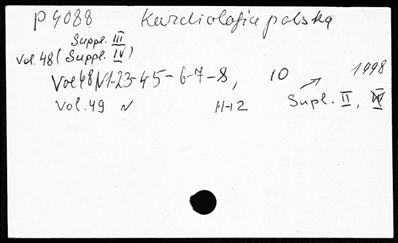 P 4088 Kardiologia polska
Suppl. III
Vol. 48 (Suppl. IV)
Vol 48 N 1-2-3-4-5-6-7-8, 10 1998
Vol. 49 N 11-12 Supl. II,